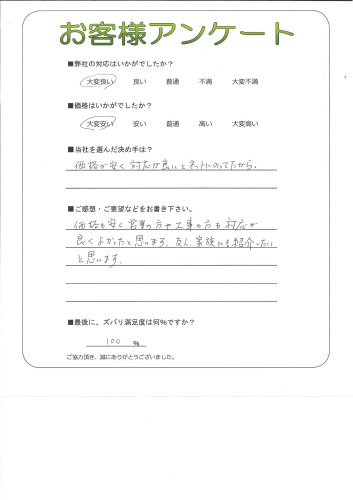 お客様アンケート
■弊社の対応はいかがでしたか？
大変良い　良い　普通　不満　大変不満
■価格はいかがでしたか？
大変安い　安い　普通　高い　大変高い
■当社を選んだ決め手は？
価格が安く対応が良いとネットにのってたから。
■ご感想・ご要望などをお書き下さい。
価格も安く営業の方や工事の方も対応が
良くよかったと思います。友人、家族にも紹介したい
と思います。
■最後に、ズバリ満足度は何％ですか？
100 ％
ご協力頂き、誠にありがとうございました。